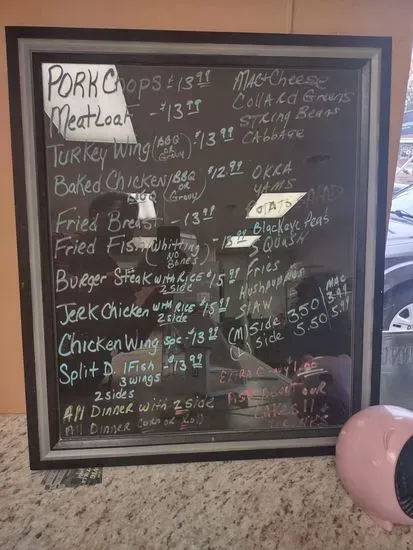 PORK Chops $13.99
MeatLoaf - $13.99
Turkey Wing (BBQ OR Gravy) $13.99
Baked Chicken (BBQ OR Gravy) $12.99
Fried Breast - 13.99
Fried Fish (Whitting NO Bones) - 15.99
Burger Steak with Rice 2 side $15.99
Jerk Chicken with Rice 2 side $15.99
Chicken Wing Spc - $13.99
Split D. 1 Fish - $13.99
3 wings
2 sides
All Dinner with 2 Side
All Dinner Corn or Roll
Mac+Cheese
Collard Greens
String Beans
Cabbage
OKRA
YAMS
Blackeye Peas
SQUASH
Fries
Hushpuppies
SlAW
(M) Side 3.50
Side 5.50
MAC
3.99
5.99